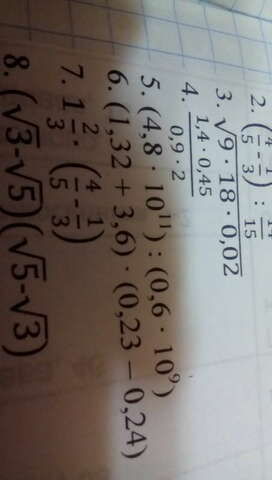 2. (4/5 - 1/3) : /15
3. √9 · 18 · 0,02
4. 1,4 · 0,45 / 0,9 · 2
5. (4,8 · 10¹¹) : (0,6 · 10⁹)
6. (1,32 + 3,6) · (0,23 – 0,24)
7. 1 2/3 · (4/5 - 1/3)
8. (√3-√5)(√5-√3)